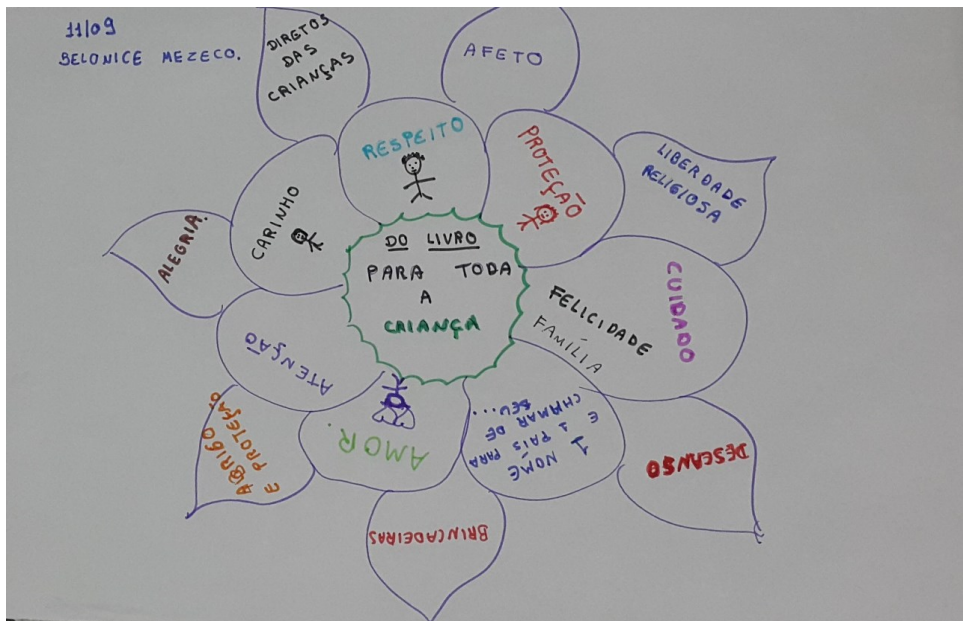 11/09
BELONICE MEZECO.
DIREITOS
DAS
CRIANÇAS
AFETO
RESPEITO
PROTEÇÃO
LIBERDADE
RELIGIOSA
CARINHO
ALEGRIA.
DO LIVRO
PARA TODA
A
CRIANÇA
CUIDADO
FELICIDADE
FAMÍLIA
ATENÇÃO
ABRIGO
E PROTEÇÃO
AMOR.
1 NOME
E 1 PAÍS PARA
CHAMAR DE
SEU...
DESCANSO
BRINCADEIRAS